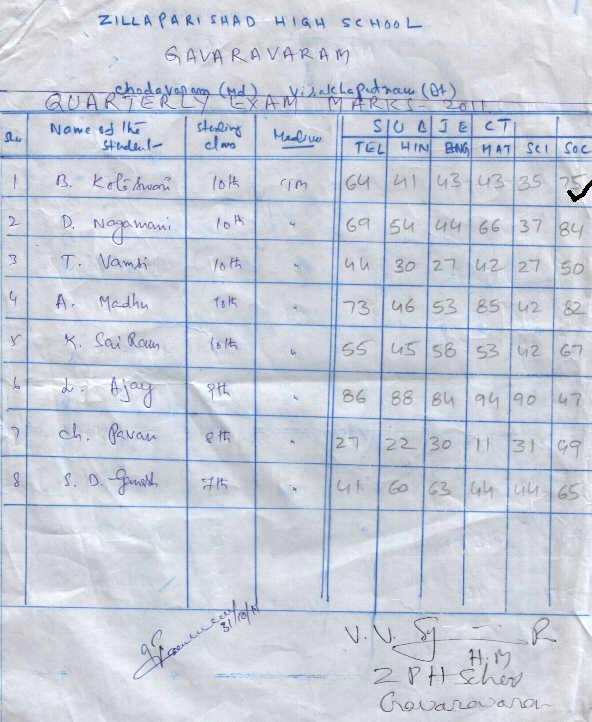 ZILLAPARISHAD HIGH SCHOOL
GAVARAVARAM
chodavaram (Md) Visakhapatnam (Dt)
QUARTERLY EXAM MARKS- 2011
Name of the Student Studing class Medium SUBJECT
TEL HIN ENG MAT SCI SOC
1 B. 10th 64 41 43 43 35 75
2 D. Nagamani 10th " 69 54 44 66 37 84
3 T. Vamsi 10th " 44 30 27 42 27 50
4 A. Madhu 10th " 73 46 53 85 42 82
5 K. Sai Ram 10th " 55 45 58 53 42 67
6 L. Ajay 9th " 86 88 84 94 90 47
7 Ch. Pavan 8th " 27 22 30 11 31 49
8 S. D. Ganesh 7th " 41 60 63 44 44 65
31/10/11
V. V.
H.M
Z P H School
Gavaravaram